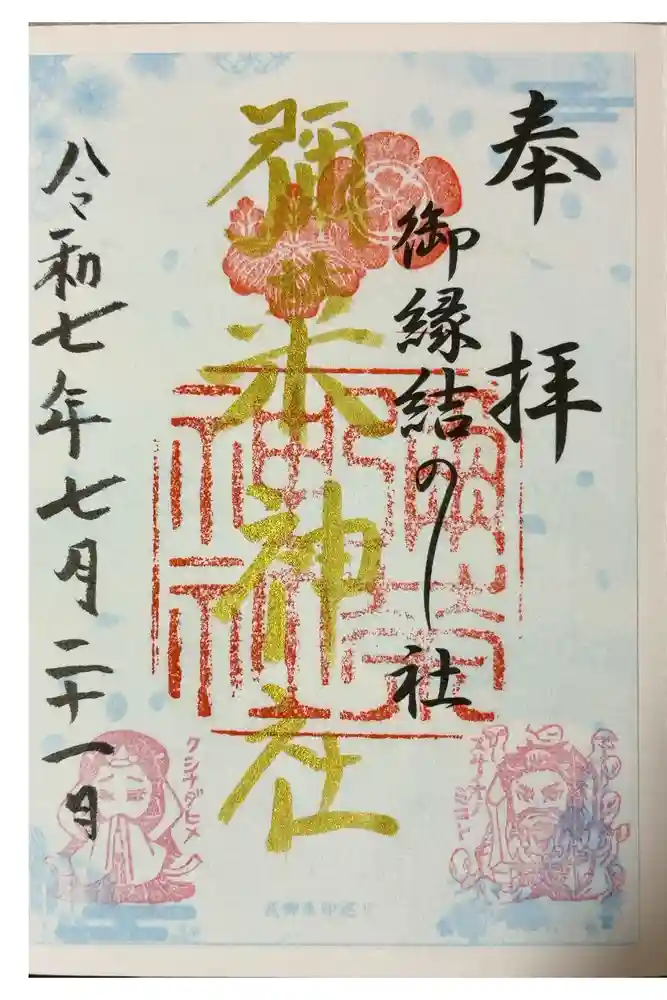 奉拝
御縁結のし社
彌榮神社
令和七年七月二十一日
スサノオノミコト
クシナダヒメ